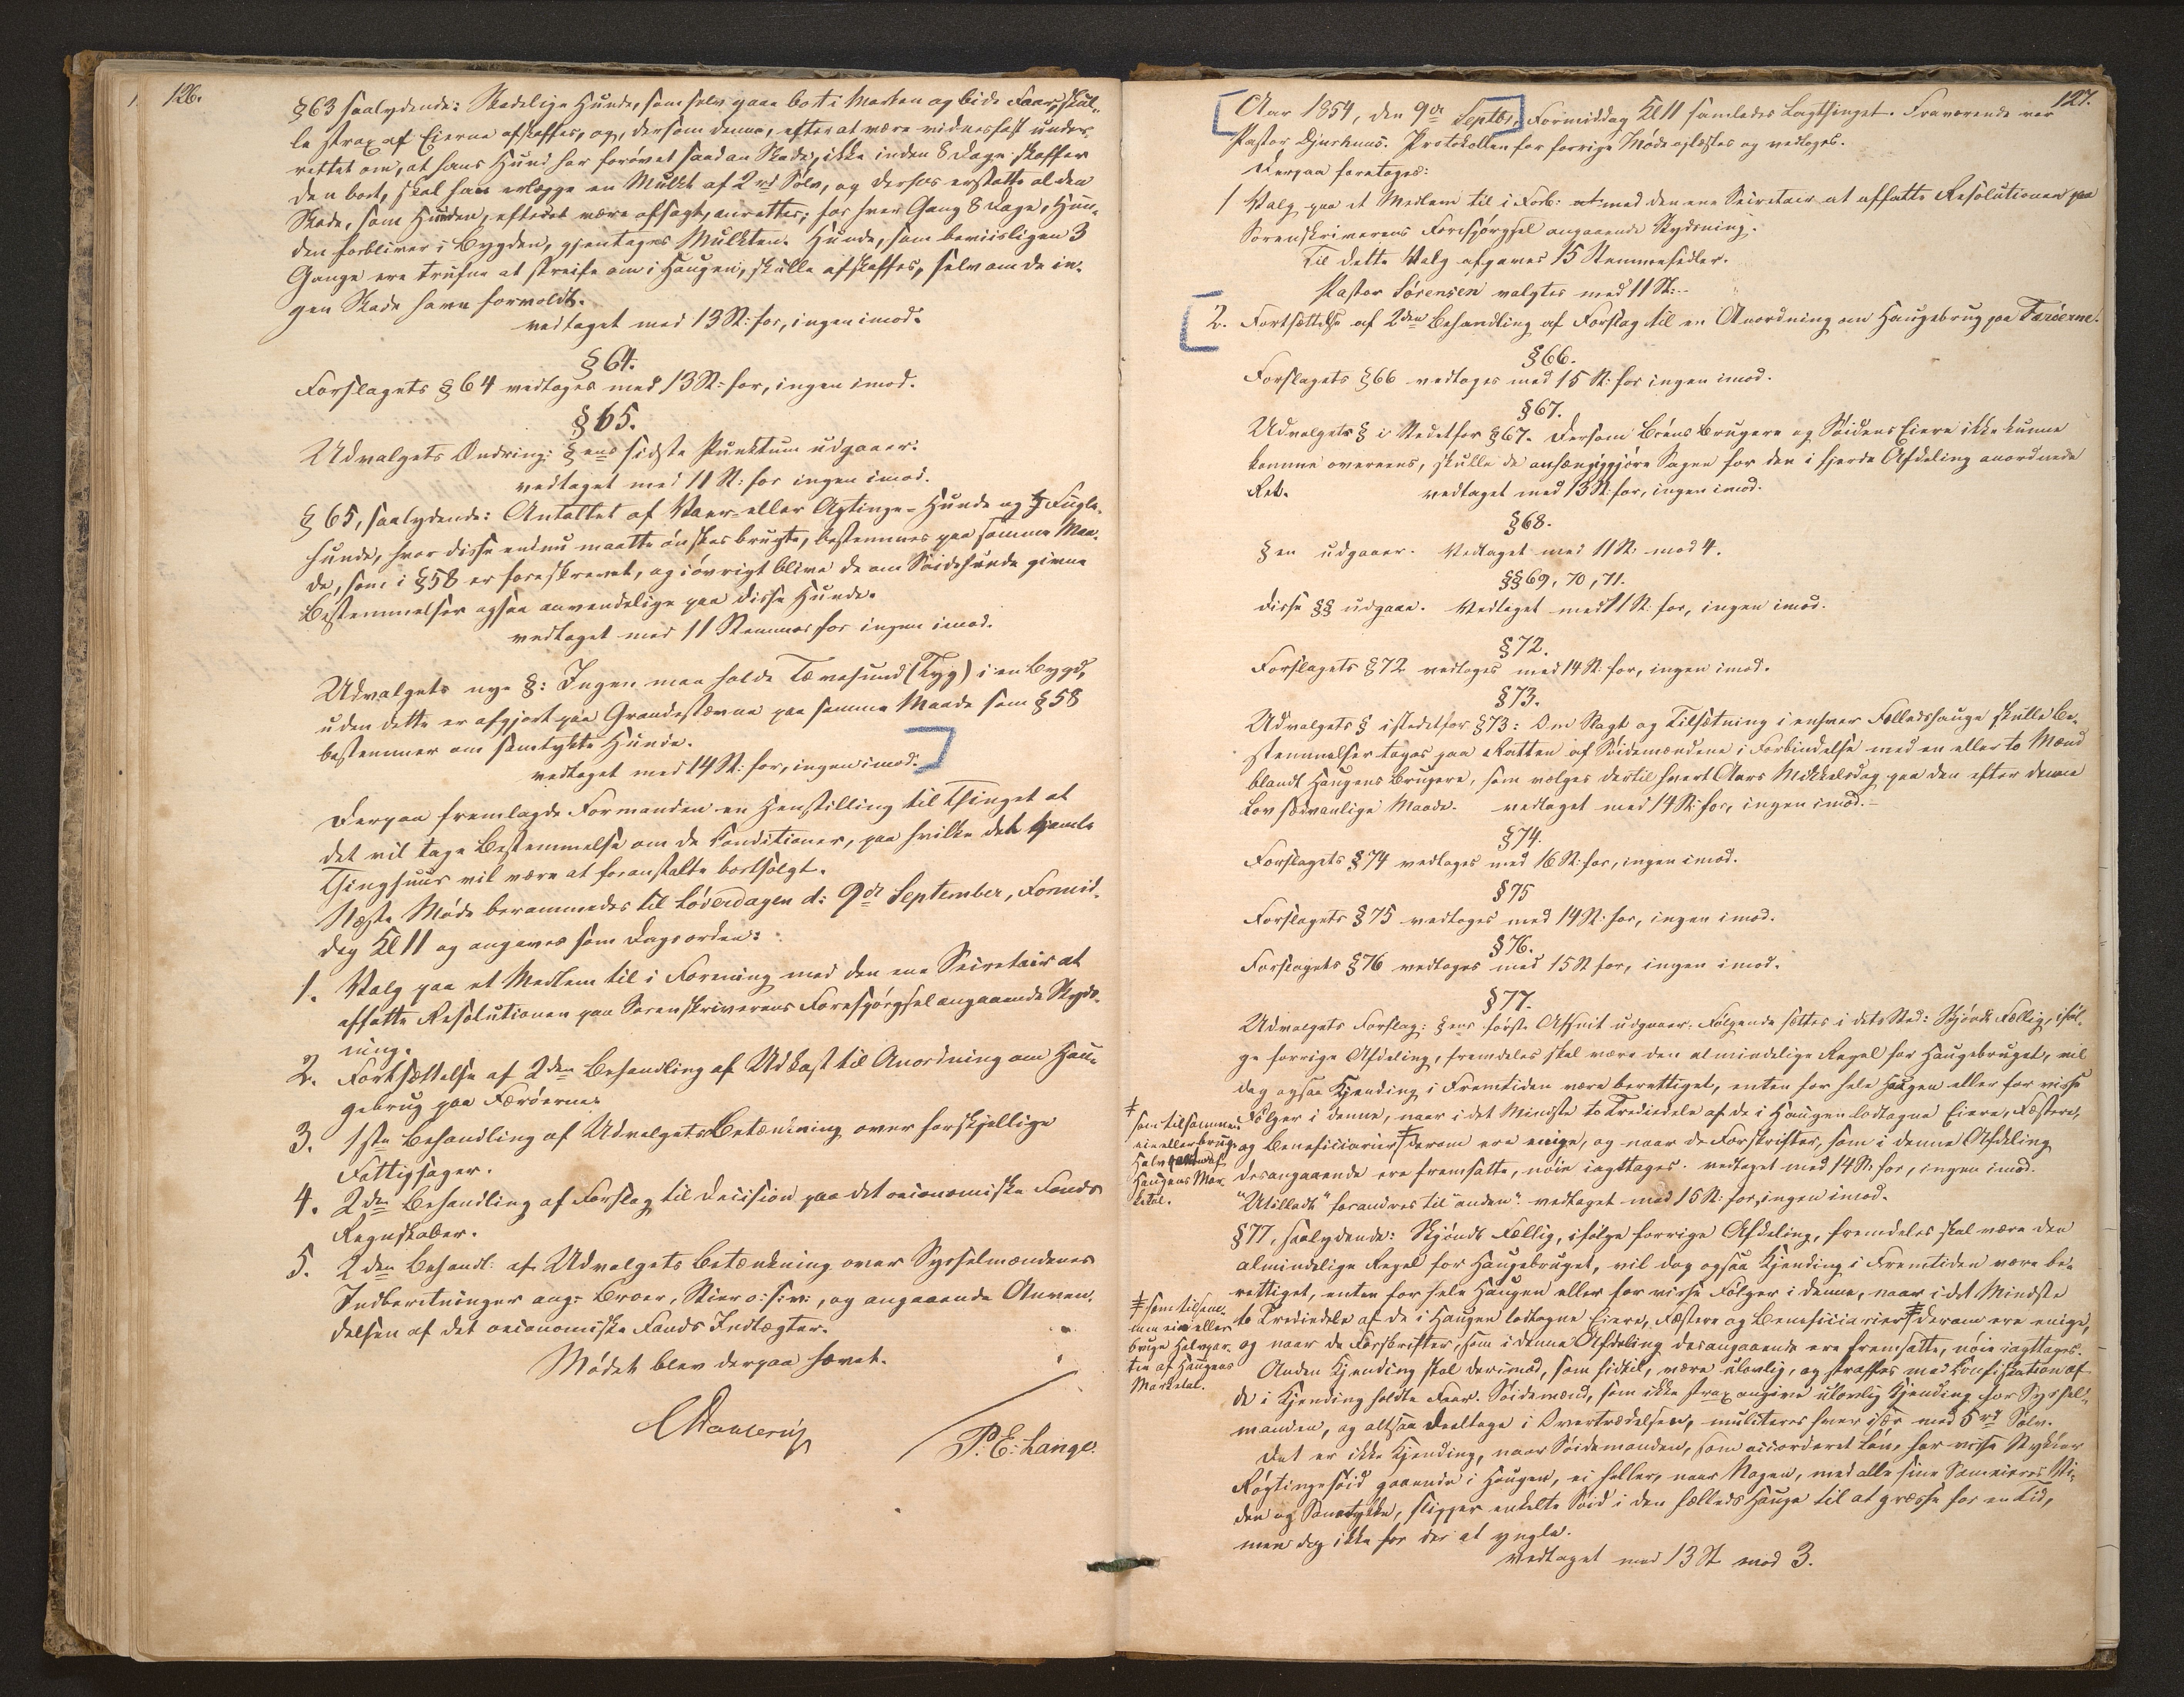 126.
§63 saalydende: Skadelige Hunde, som selv gaae bort i Marken og bide Faar, skul-
le strax af Eierne afskaffes, og, dersom denne, efter at være vidnesfast under-
rettet om, at hans Hund har forøvet saadan Skade, ikke inden 8 Dage skaffer
den bort, skal han erlægge en Mulkt af 2 rd Sølv, og derhos erstatte al den
Skade, som Hunden, efterat være afsagt, anretter; for hver Gang 8 Dage, Hun-
den forbliver i Bygden, gjentages Mulkten. Hunde, som beviisligen 3
Gange ere trufne at streife om i Haugen, skulle afskaffes, selv om de in-
gen Skade have forvoldt.
vedtaget med 13 St: for, ingen imod.
§ 64.
Forslagets § 64 vedtages med 13 St: for, ingen imod.
§ 65.
Udvalgets Ændring: § ens sidste Punktum udgaaer.
vedtaget med 11 St: for ingen imod.
§ 65, saalydende: Antallet af Vaer- eller Agtinge-Hunde og Fugle-
hunde, hvor disse endnu maatte ønskes brugte, bestemmes paa samme Maa-
de, som i §58 er foreskrevet, og iøvrigt blive de om Seidehunde givne
Bestemmelser ogsaa anvendelige paa disse Hunde.
vedtaget med 11 Stemmer for ingen imod.
Udvalgets nye §: Ingen maa holde Tævehund (Tyg) i en Bygd,
uden dette er afgjort paa Grandestævne paa samme Maade som § 58
bestemmer om samtykte Hunde.
vedtaget med 14 St: for, ingen imod.
Derpaa fremlagde Formanden en Henstilling til Thinget at
det vil tage Bestemmelse om de Conditioner, paa hvilke det gamle
Thinghuus vil være at foranstalte bortsolgt.
Næste Møde berammedes til Løverdagen d: 9de September, Formid-
dag Kl 11 og angaves som Dagsorden:
1. Valg paa et Medlem til i Forening med den ene Secretair at
affatte Resolutionen paa Sorenskriverens Forespørgsel angaaende Skyds-
ning.
2. Fortsættelse af 2den Behandling af Udkast til Anordning om Hau-
gebrug paa Færøerne.
3. 1ste Behandling af Udvalgets Betænkning over forskjellige
Fattigsager.
4. 2den Behandling af Forslag til Decision paa det oeconomiske Fonds
Regnskaber.
5. 2den Behandl: af Udvalgets Betænkning over Sysselmændenes
Indberetninger ang: Broer, Stier o: s: v:, og angaaende Anven-
delsen af det oeconomiske Fonds Indtægter.
Mødet blev derpaa hævet.
CDahlerup
P. E: Lange.
127.
Aar 1854, den 9de Septbr, Formiddag Kl 11 samledes Lagthinget. Fraværende var
Pastor Djurhuus. Protokollen for forrige Møde oplæstes og vedtoges.
Derpaa foretoges:
1 Valg paa et Medlem til i Forb: med den ene Secretair at affatte Resolutionen paa
Sorenskriverens Forespørgsel angaaende Skydsning.
Til dette Valg afgaves 15 Stemmesedler.
Pastor Sørensen valgtes med 11 St:.
2. Fortsættelse af 2den Behandling af Forslag til en Anordning om Haugebrug paa Færøerne.
§66.
Forslagets §66 vedtages med 15 St: for ingen imod.
§67.
Udvalgets § i Stedetfor §67. Dersom Løens Brugere og Seidens Eiere ikke kunne
komme overeens, skulle de anhængiggjøre Sagen for den i fjerde Afdeling anordnede
Ret. vedtaget med 13 St: for, ingen imod.
§68.
§ en udgaaer. Vedtaget med 11 St: mod 4.
§§69, 70, 71.
Disse §§ udgaae. Vedtaget med 11 St: for, ingen imod.
§72.
Forslagets §72 vedtages med 14 St: for, ingen imod.
§73.
Udvalgets § istedetfor §73: Om Slagt og Tilsætning i enhver Fælledshauge skulle Be-
stemmelser tages paa Ratten af Seidemændene i Forbindelse med en eller to Mænd
blandt Haugens Brugere, som vælges dertil hvert Aars Mikkelsdag paa den efter denne
Lov sædvanlige Maade. vedtaget med 14 St: for, ingen imod.
§74.
Forslagets §74 vedtages med 16 St: for, ingen imod.
§75
Forslagets §75 vedtages med 14 St: for, ingen imod.
§76.
Forslagets §76 vedtages med 15 St for, ingen imod.
§77.
Udvalgets Forslag: § ens først Afsnit udgaaer. Følgende sættes i dets Sted: Skjøndt Fællig, iføl-
ge forrige Afdeling, fremdeles skal være den almindelige Regel for Haugebruget, vil
dog ogsaa Kjending i Fremtiden være berettiget, enten for hele Haugen eller for visse
Følger i denne, naar i det Mindste to Trediedele af de i Haugen lodtagne Eiere, Fæstere,
og Beneficiarier ‡ derom ere enige, og naar de Forskrifter, som i denne Afdeling
desangaaende ere fremsatte, nøie iagttages. vedtaget med 14 St: for, ingen imod.
‡
som tilsammen
eie eller bruge
Halvparten af
Haugens Mar-
ketal.
"Utilladt" forandres til "anden". vedtaget med 16 St: for, ingen imod.
§77, saalydende: Skjøndt Fællig, ifølge forrige Afdeling, fremdeles skal være den
almindelige Regel for Haugebruget, vil dog ogsaa Kjending i Fremtiden være be-
rettiget, enten for hele Haugen eller for visse Følger i denne, naar i det Mindste
to Trediedele af de i Haugen lodtagne Eiere, Fæstere og Beneficiarier ‡ derom ere enige,
og naar de Forskrifter, som i denne Afdeling desangaaende ere fremsatte, nøie iagttages.
‡ som tilsam-
men eie eller
bruge Halvpar-
ten af Haugens
Marketal.
Anden Kjending skal derimod, som hidtil, være ulovlig, og straffes med Confiskation af
de i Kjending holdte Faar. Seidemænd, som ikke strax angive ulovlig Kjending for Syssel-
manden, og altsaa deeltage i Overtrædelsen, mulcteres hver især med 5 rd Sølv.
Det er ikke Kjending, naar Seidemanden, som accorderet Løn, har visse Stykker
Røgtingeseid gaaende i Haugen, ei heller, naar Nogen, med alle sine Sameieres Vi-
den og Samtykke, slipper enkelte Seid i den fælleds Hauge til at græsse for en Tid,
men dog ikke for der at yngle.
Vedtaget med 13 St mod 3.